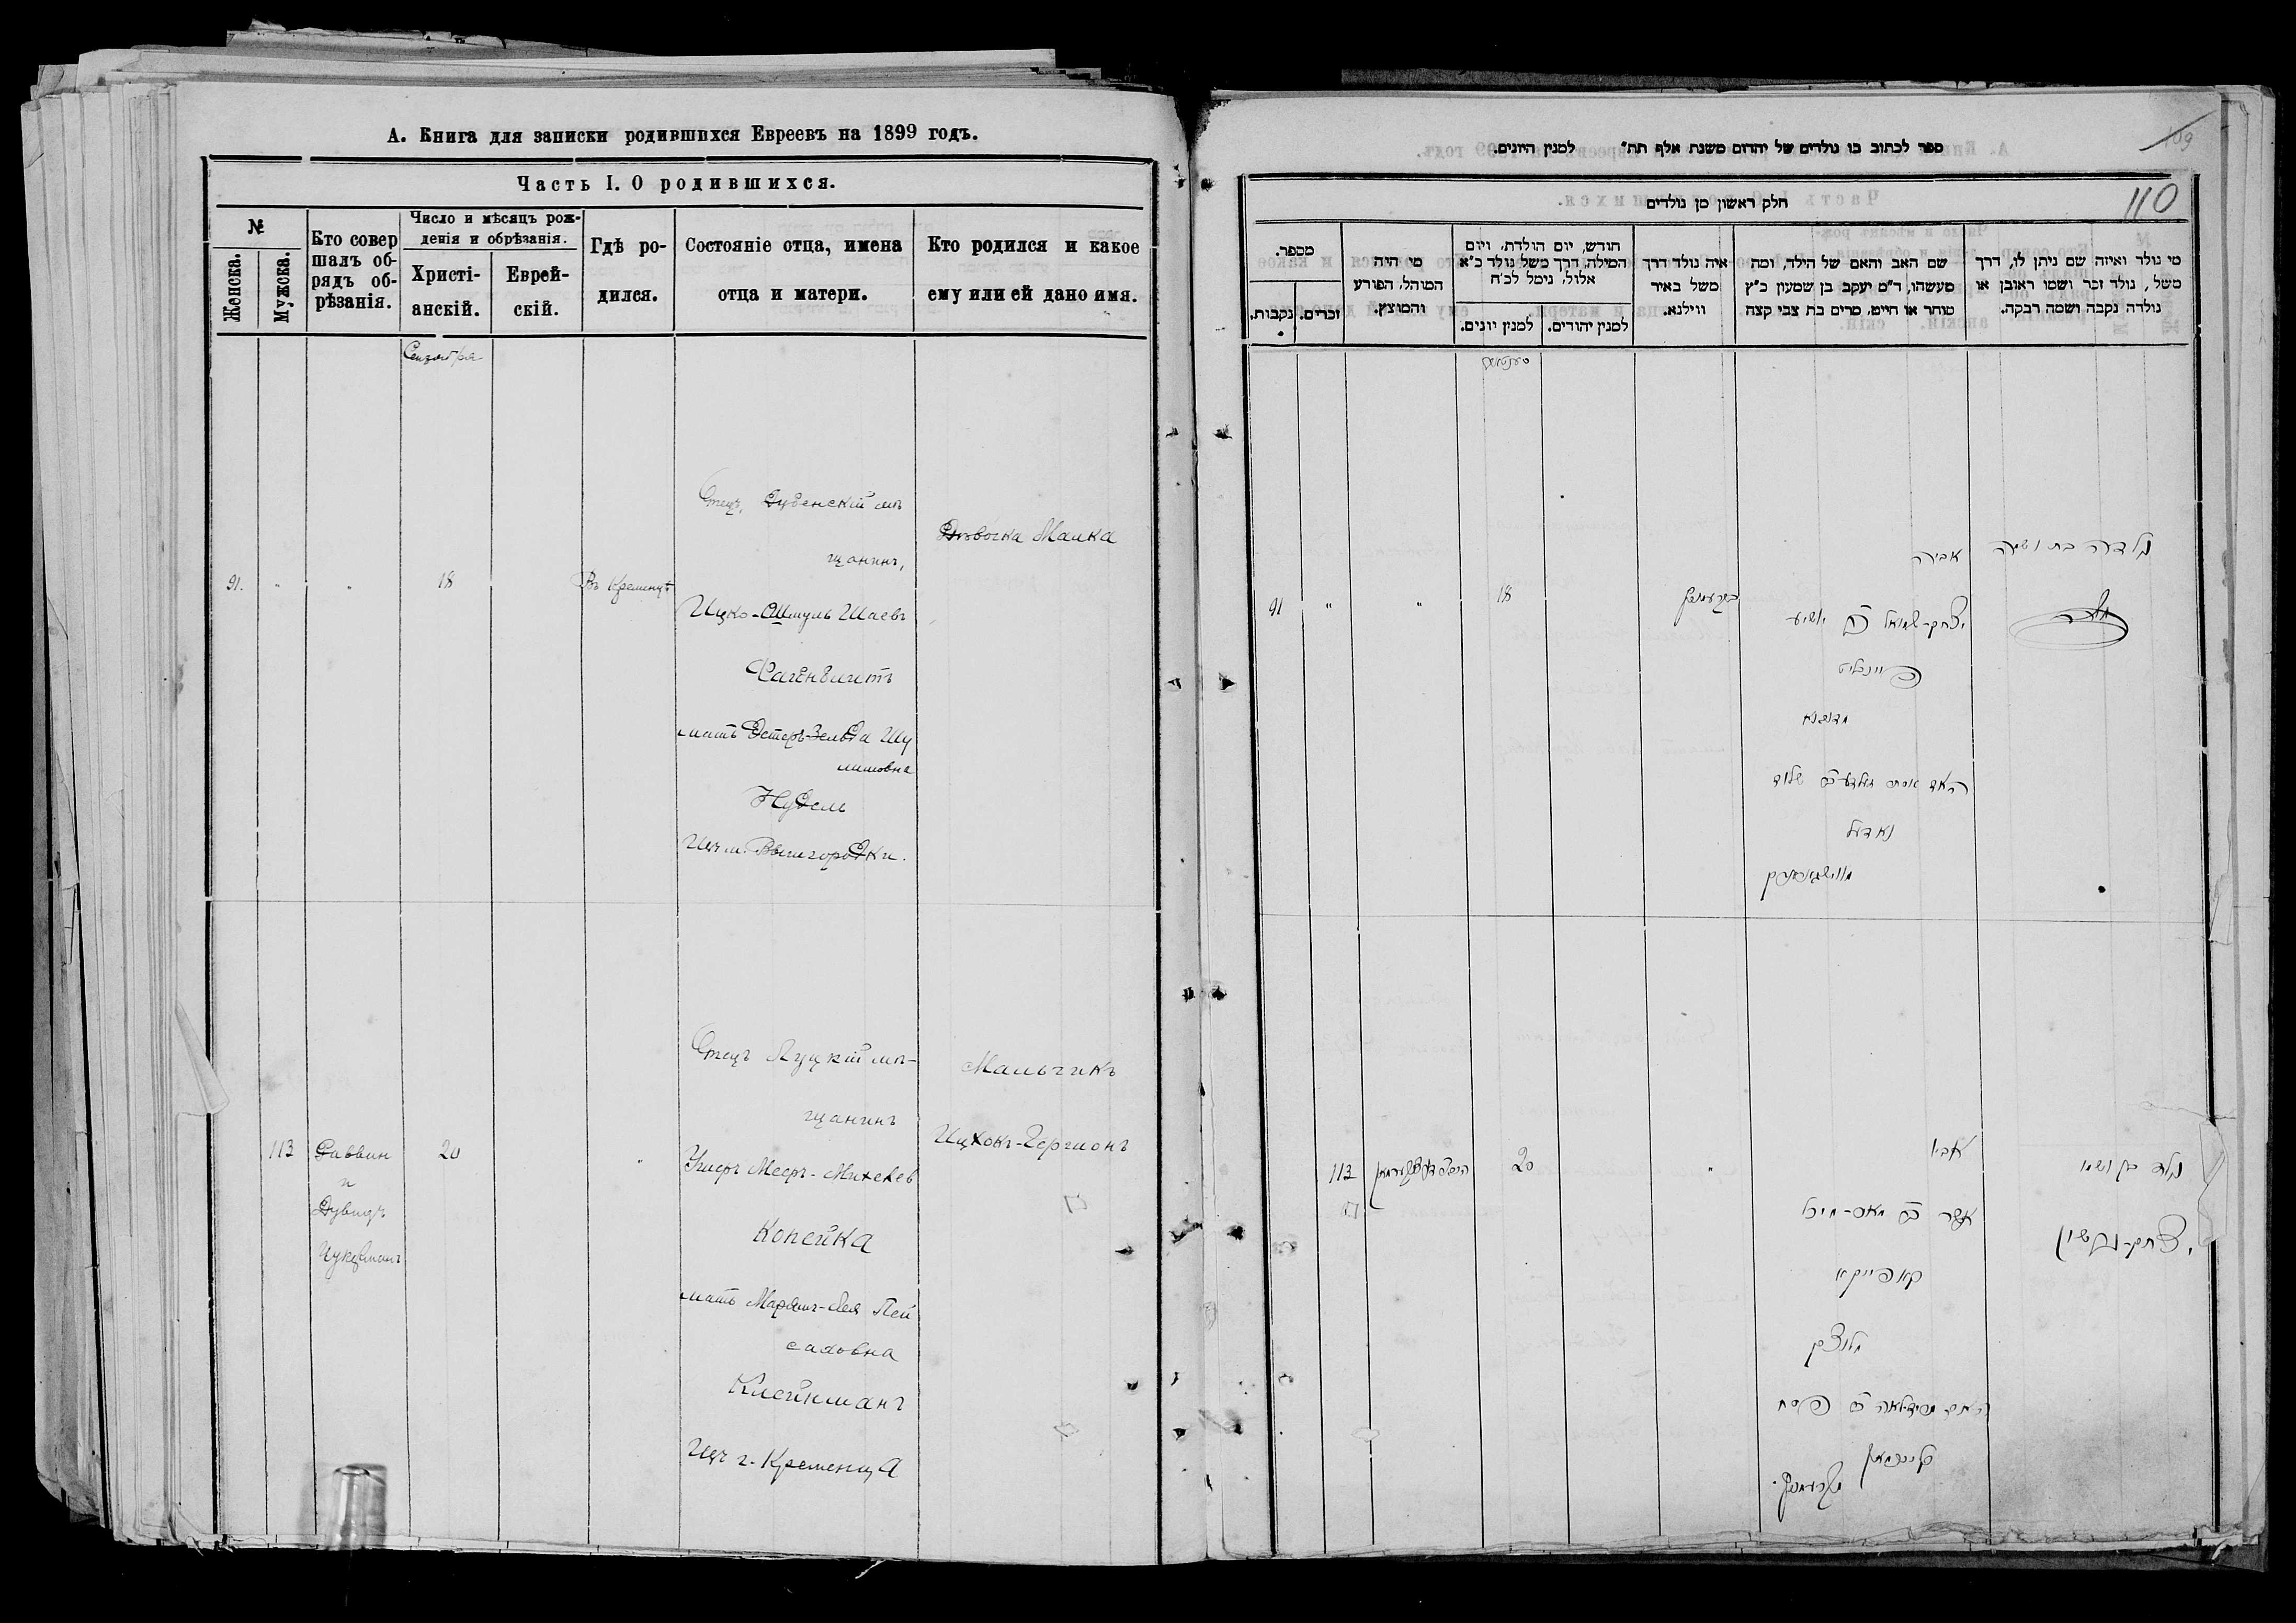 А. Книга для записки родившихся Евреевъ на 1899 годъ.
Часть I. О родившихся.
№
Женска.
Мужска.
Кто совер
шалъ об-
рядъ об-
рѣзанія.
Число и мѣсяцъ рож-
денія и обрѣзанія.
Христі-
анскій.
Еврей-
скій.
Гдѣ ро-
дился.
Состояніе отца, имена
отца и матери.
Кто родился и какое
ему или ей дано имя.
Сентября
91.
"
"
18
Въ Кременцѣ
Отецъ, Дубенскій мѣ
щанинъ,
Ицко-Шмуль Шаевъ
мать Эстеръ-Зельда Шу
лимовна
Нудель
Изъ м. Вышгородки.
Дѣвочка Малка
113
Раввин
и
Дувидъ
Цукерманъ
20
"
Отецъ Луцкій мѣ-
щанинъ
Ушеръ Мееръ-Михелев
Копейка
мать Марьямъ-Лея Пей
саховна
Клейнманъ
Изъ г. Кременца
Мальчикъ
Ицхокъ-Гершонъ
109
110
ספר לכתוב בו נולדים של יהדים משנת אלף תת״ למנין היונים.
חלק ראשון מן נולדים
מספר.
נקבות.
זכרים.
מי היה
המוהל, הפורע
והמוצץ.
חודש, יום הולדת, ויום
המילה, דרך משל נולד כ״א
אלול, נימל לכ״ח
למנין יונים.
למנין יהודים.
איה נולד דרך
משל באיר
ווילנא.
שם האב והאם של הילד, ומה
מעשהו, ד״מ יעקב בן שמעון כ״ץ
סוחר או חייט, מרים בת צבי קצה
מי נולד ואיזה שם ניתן לו, דרך
משל, נולד זכר ושמו ראובן או
נולדה נקבה ושמה רבקה.
91
"
"
18
אביה
יצחק-שמואל ב״ר יושיע
מדובנא
נאדעל
נולדה בת ושמה
מלכה
113
20
"
אביו
אשר ב״ר מאיר-מיכל
קאפייקא
מלוצק
קליינמאן
נולד בן ושמו
יצחק-גרשון